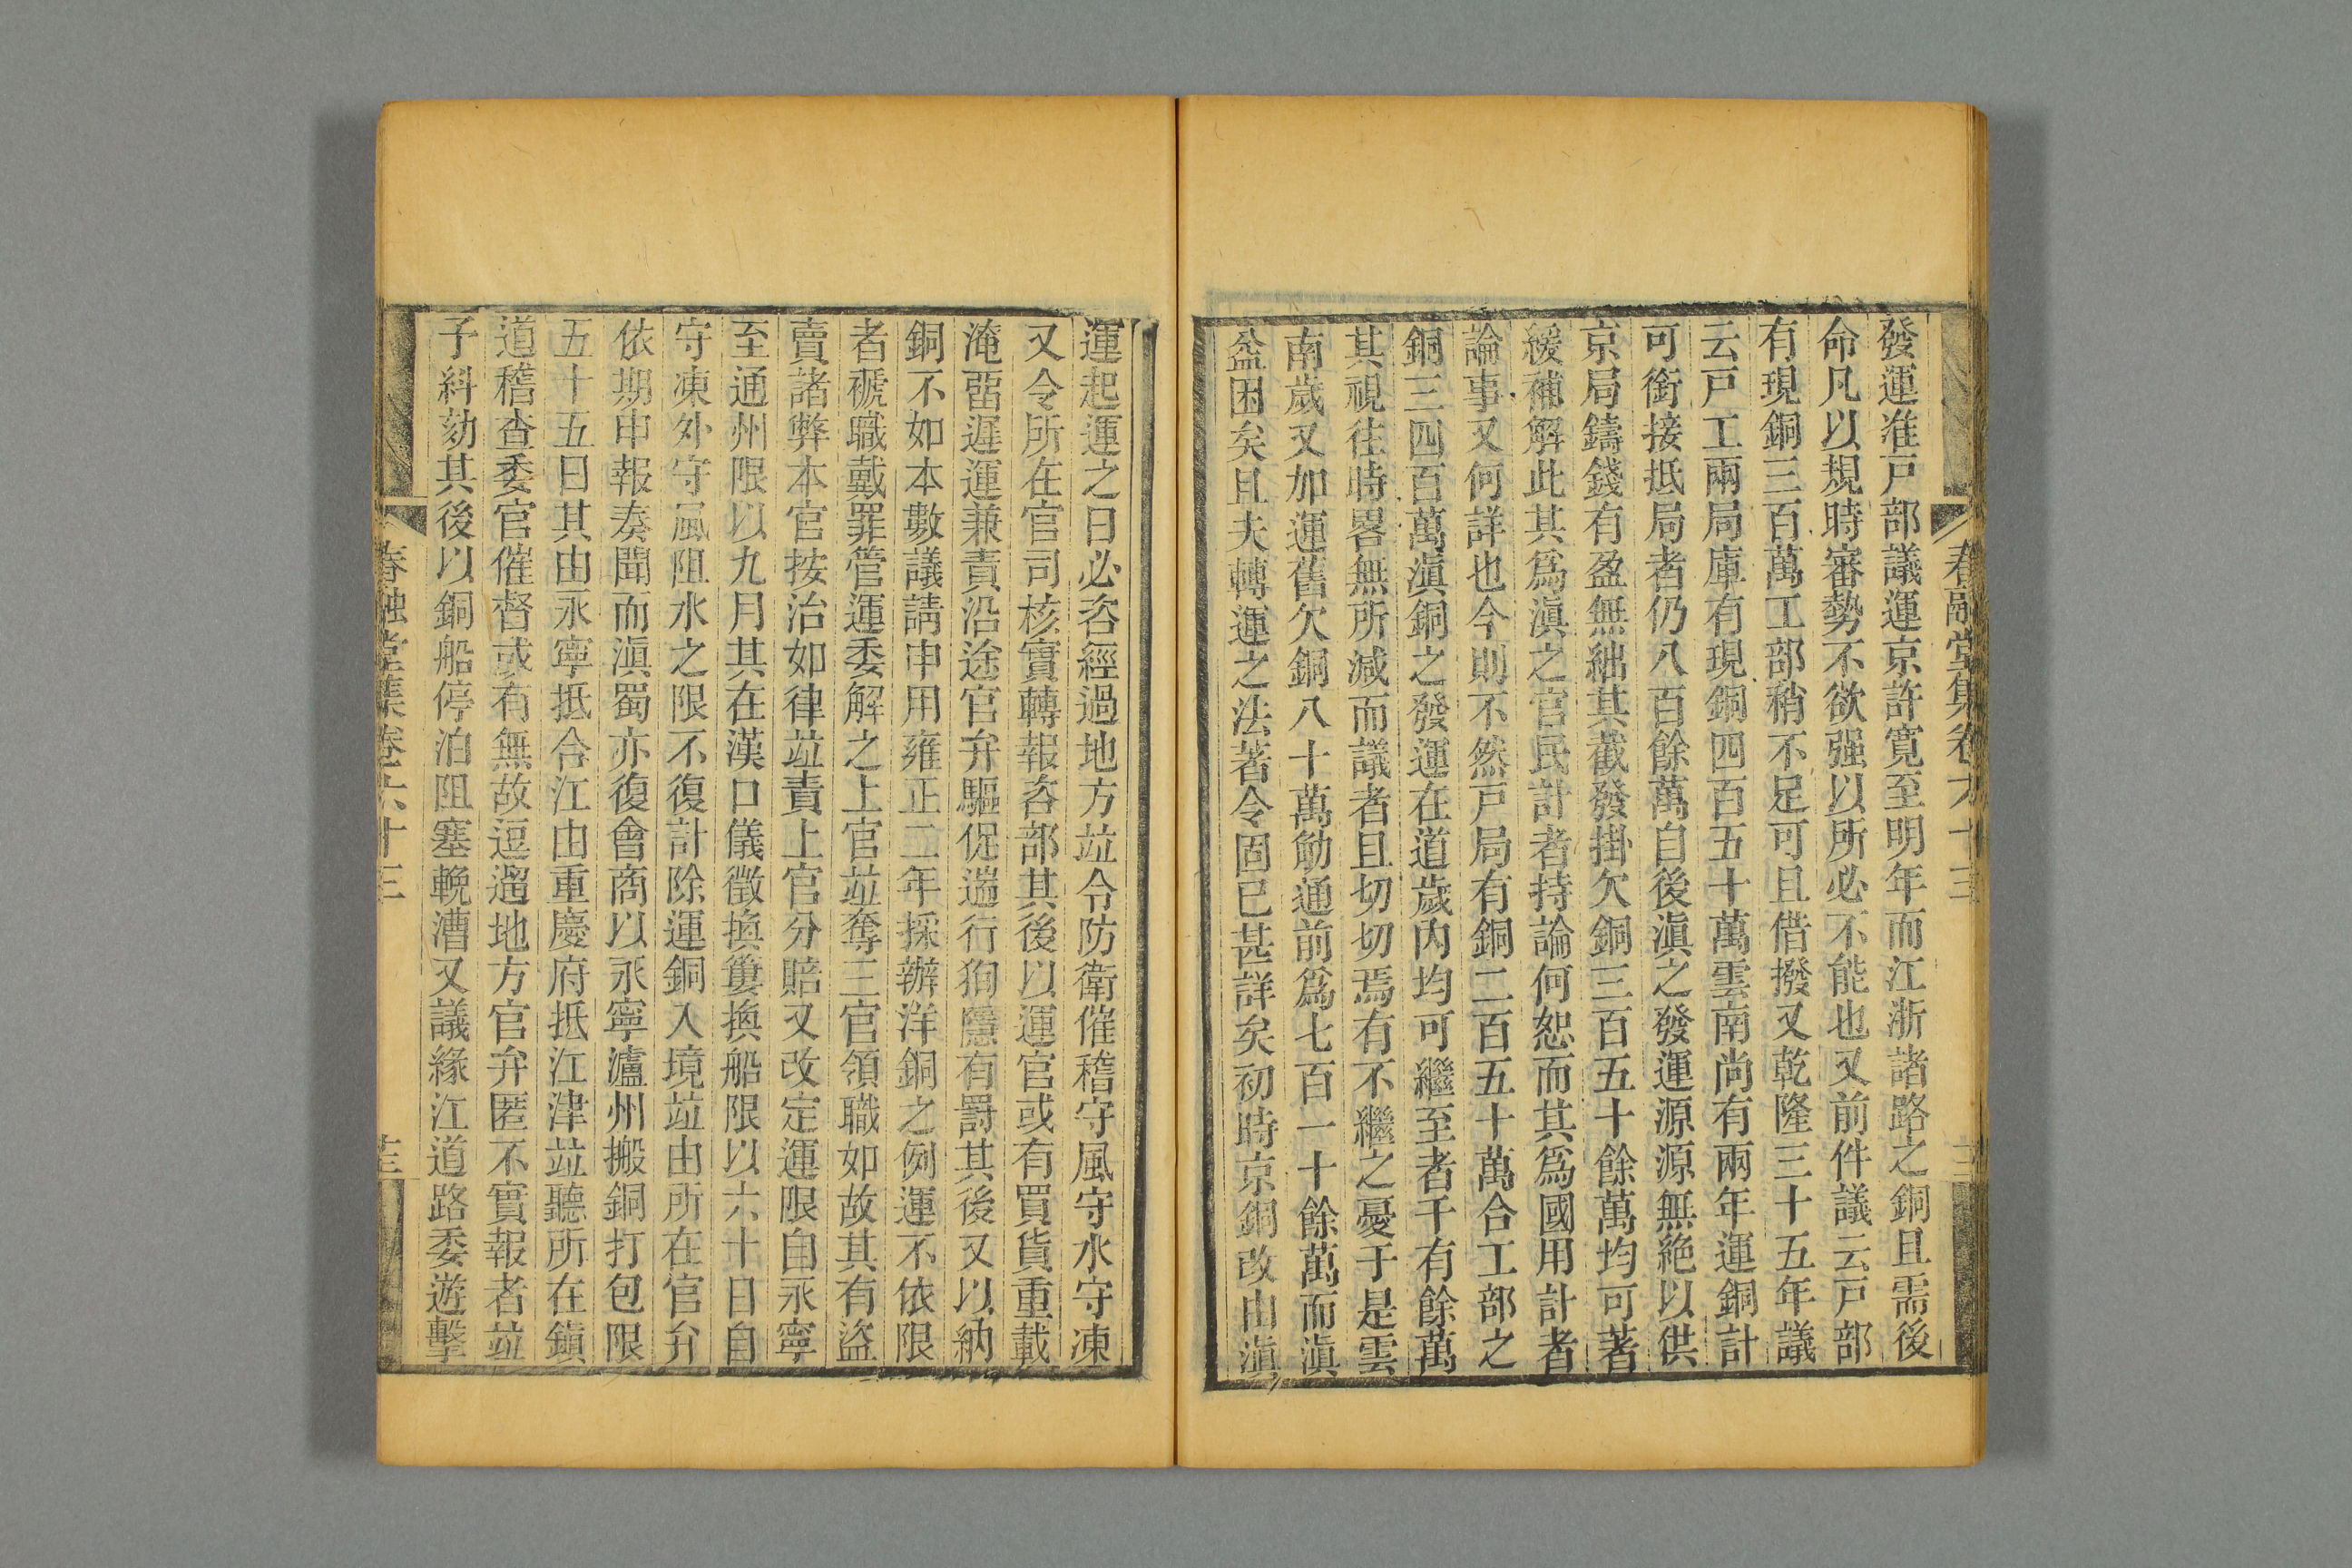 春融堂集卷六十三
發運准戸部議運京許寛至明年而江浙諸路之銅且需後
命凡以規時審勢不欲强以所必不能也又前件議云戸部
有現銅三百萬工部稍不足可且借撥又乾隆三十五年議
云戸工兩局庫有現銅四百五十萬雲南尚有兩年運銅計
可銜接抵局者仍八百餘萬自後滇之發運源源無絶以供
京局鑄錢有盈無絀其截發掛欠銅三百五十餘萬均可著
緩補解此其爲滇之官民計者持論何恕而其爲國用計者
論事又何詳也今則不然戸局有銅二百五十萬合工部之
銅三四百萬滇銅之發運在道歲内均可繼至者千有餘萬
其視往時畧無所減而議者且切切焉有不繼之憂于是雲
南歲又加運舊欠銅八十萬觔通前爲七百一十餘萬而滇
益困矣且夫轉運之法著令固已甚詳矣初時京銅改由滇
運起運之日必咨經過地方竝令防衛催稽守風守水守凍
又令所在官司核實轉報咨部其後以運官或有買貨重載
淹畱遲運兼責沿途官弁驅促遄行狥隱有罰其後又以納
銅不如本數議請申用雍正二年採辦洋銅之例運不依限
者褫職戴罪管運委解之上官竝奪三官領職如故其有盜
賣諸弊本官按治如律竝責上官分賠又改定運限自永寧
至通州限以九月其在漢口儀徵換簍換船限以六十日自
守凍外守風阻水之限不復計除運銅入境竝由所在官弁
依期申報奏聞而滇蜀亦復會商以永寧瀘州搬銅打包限
五十五日其由永寧抵合江由重慶府抵江津竝聽所在鎭
道稽查委官催督或有無故逗遛地方官弁匿不實報者竝
子糾劾其後以銅船停泊阻塞輓漕又議緣江道路委遊擊
春融堂集卷六十三